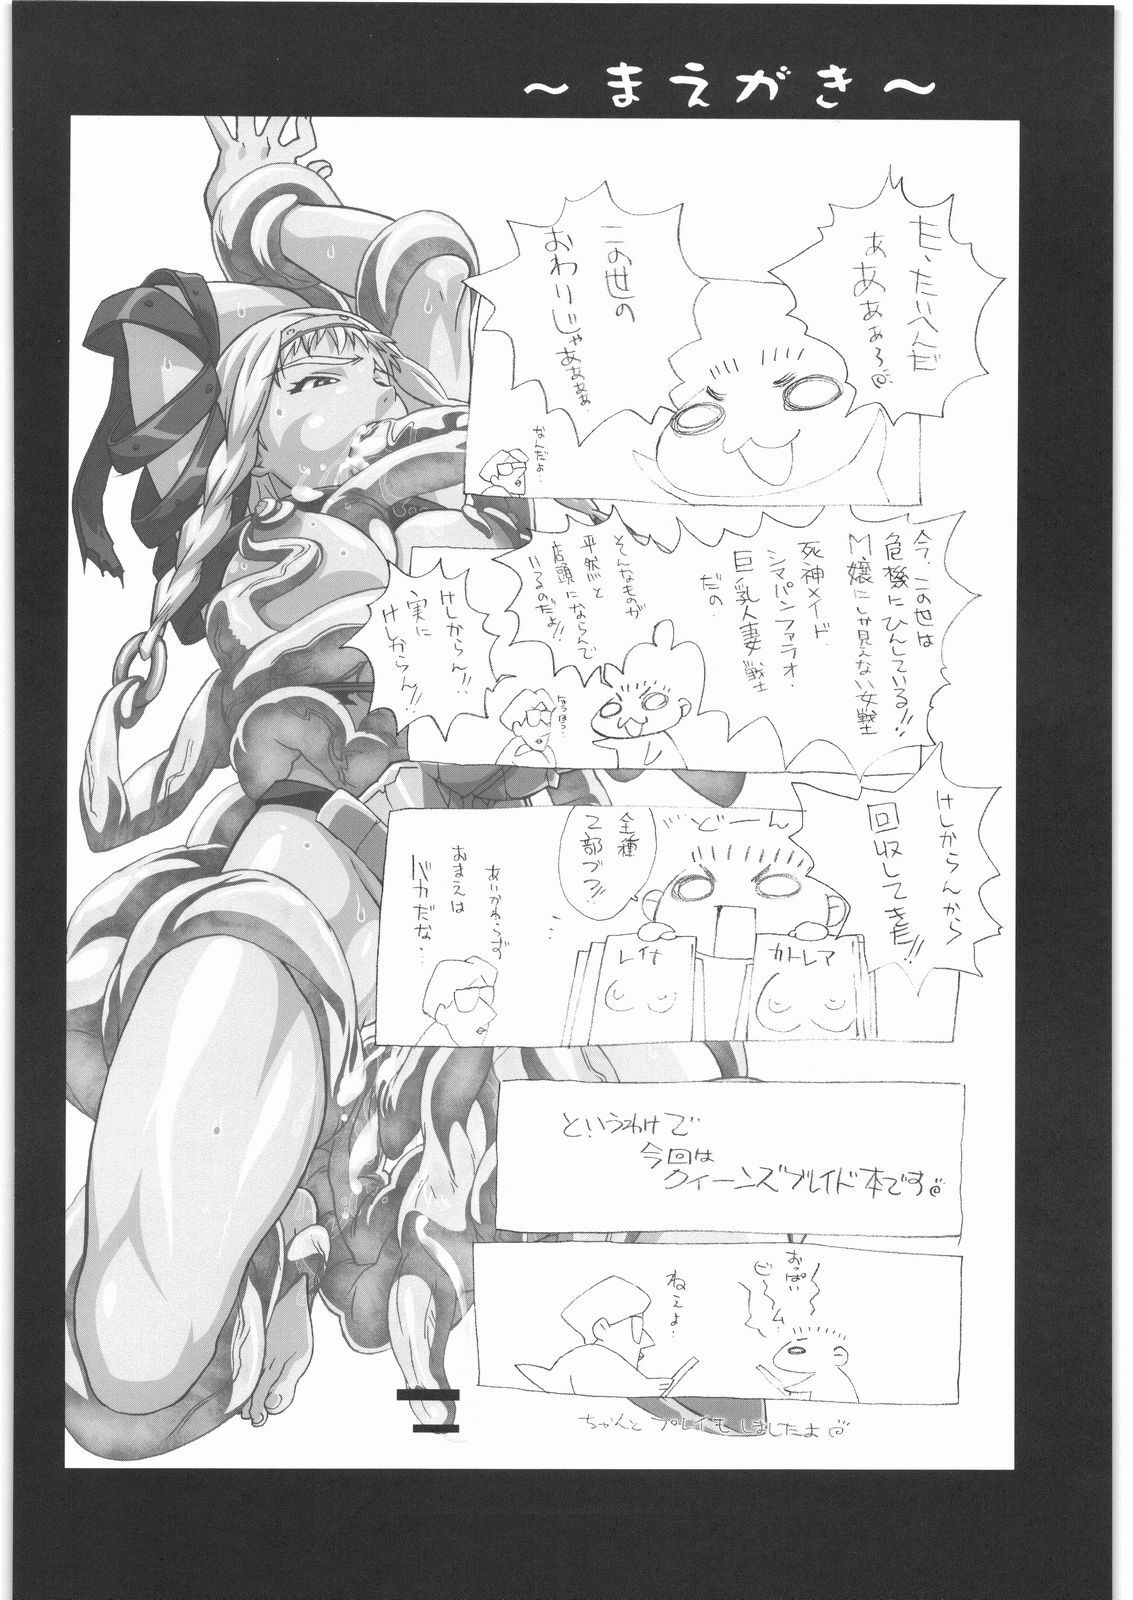 ～まえがき～
た、たいへんだ
ああああぁ〜
この世の
おわりじゃあぁぁぁぁ
なんだよ…
今、この世は
危機にひんしている!!
M嬢にしか見えない女戦士
死神メイド、
シマパンファラオ、
巨乳人妻戦士
だの
そんなものが
平然と
店頭にならんで
いるのだよ!!
けしからん!!
実に
けしからん!!
けしからんから
回収してきた!!
どーん
全種
2部づつ!!
レイナ
カトレア
あいかわらず
おまえは
バカだな…
というわけで
今回は
クイーンズブレイド本です
おっぱい
ビーム
ねぇよ…
ちゃんと プレイも しましたよ